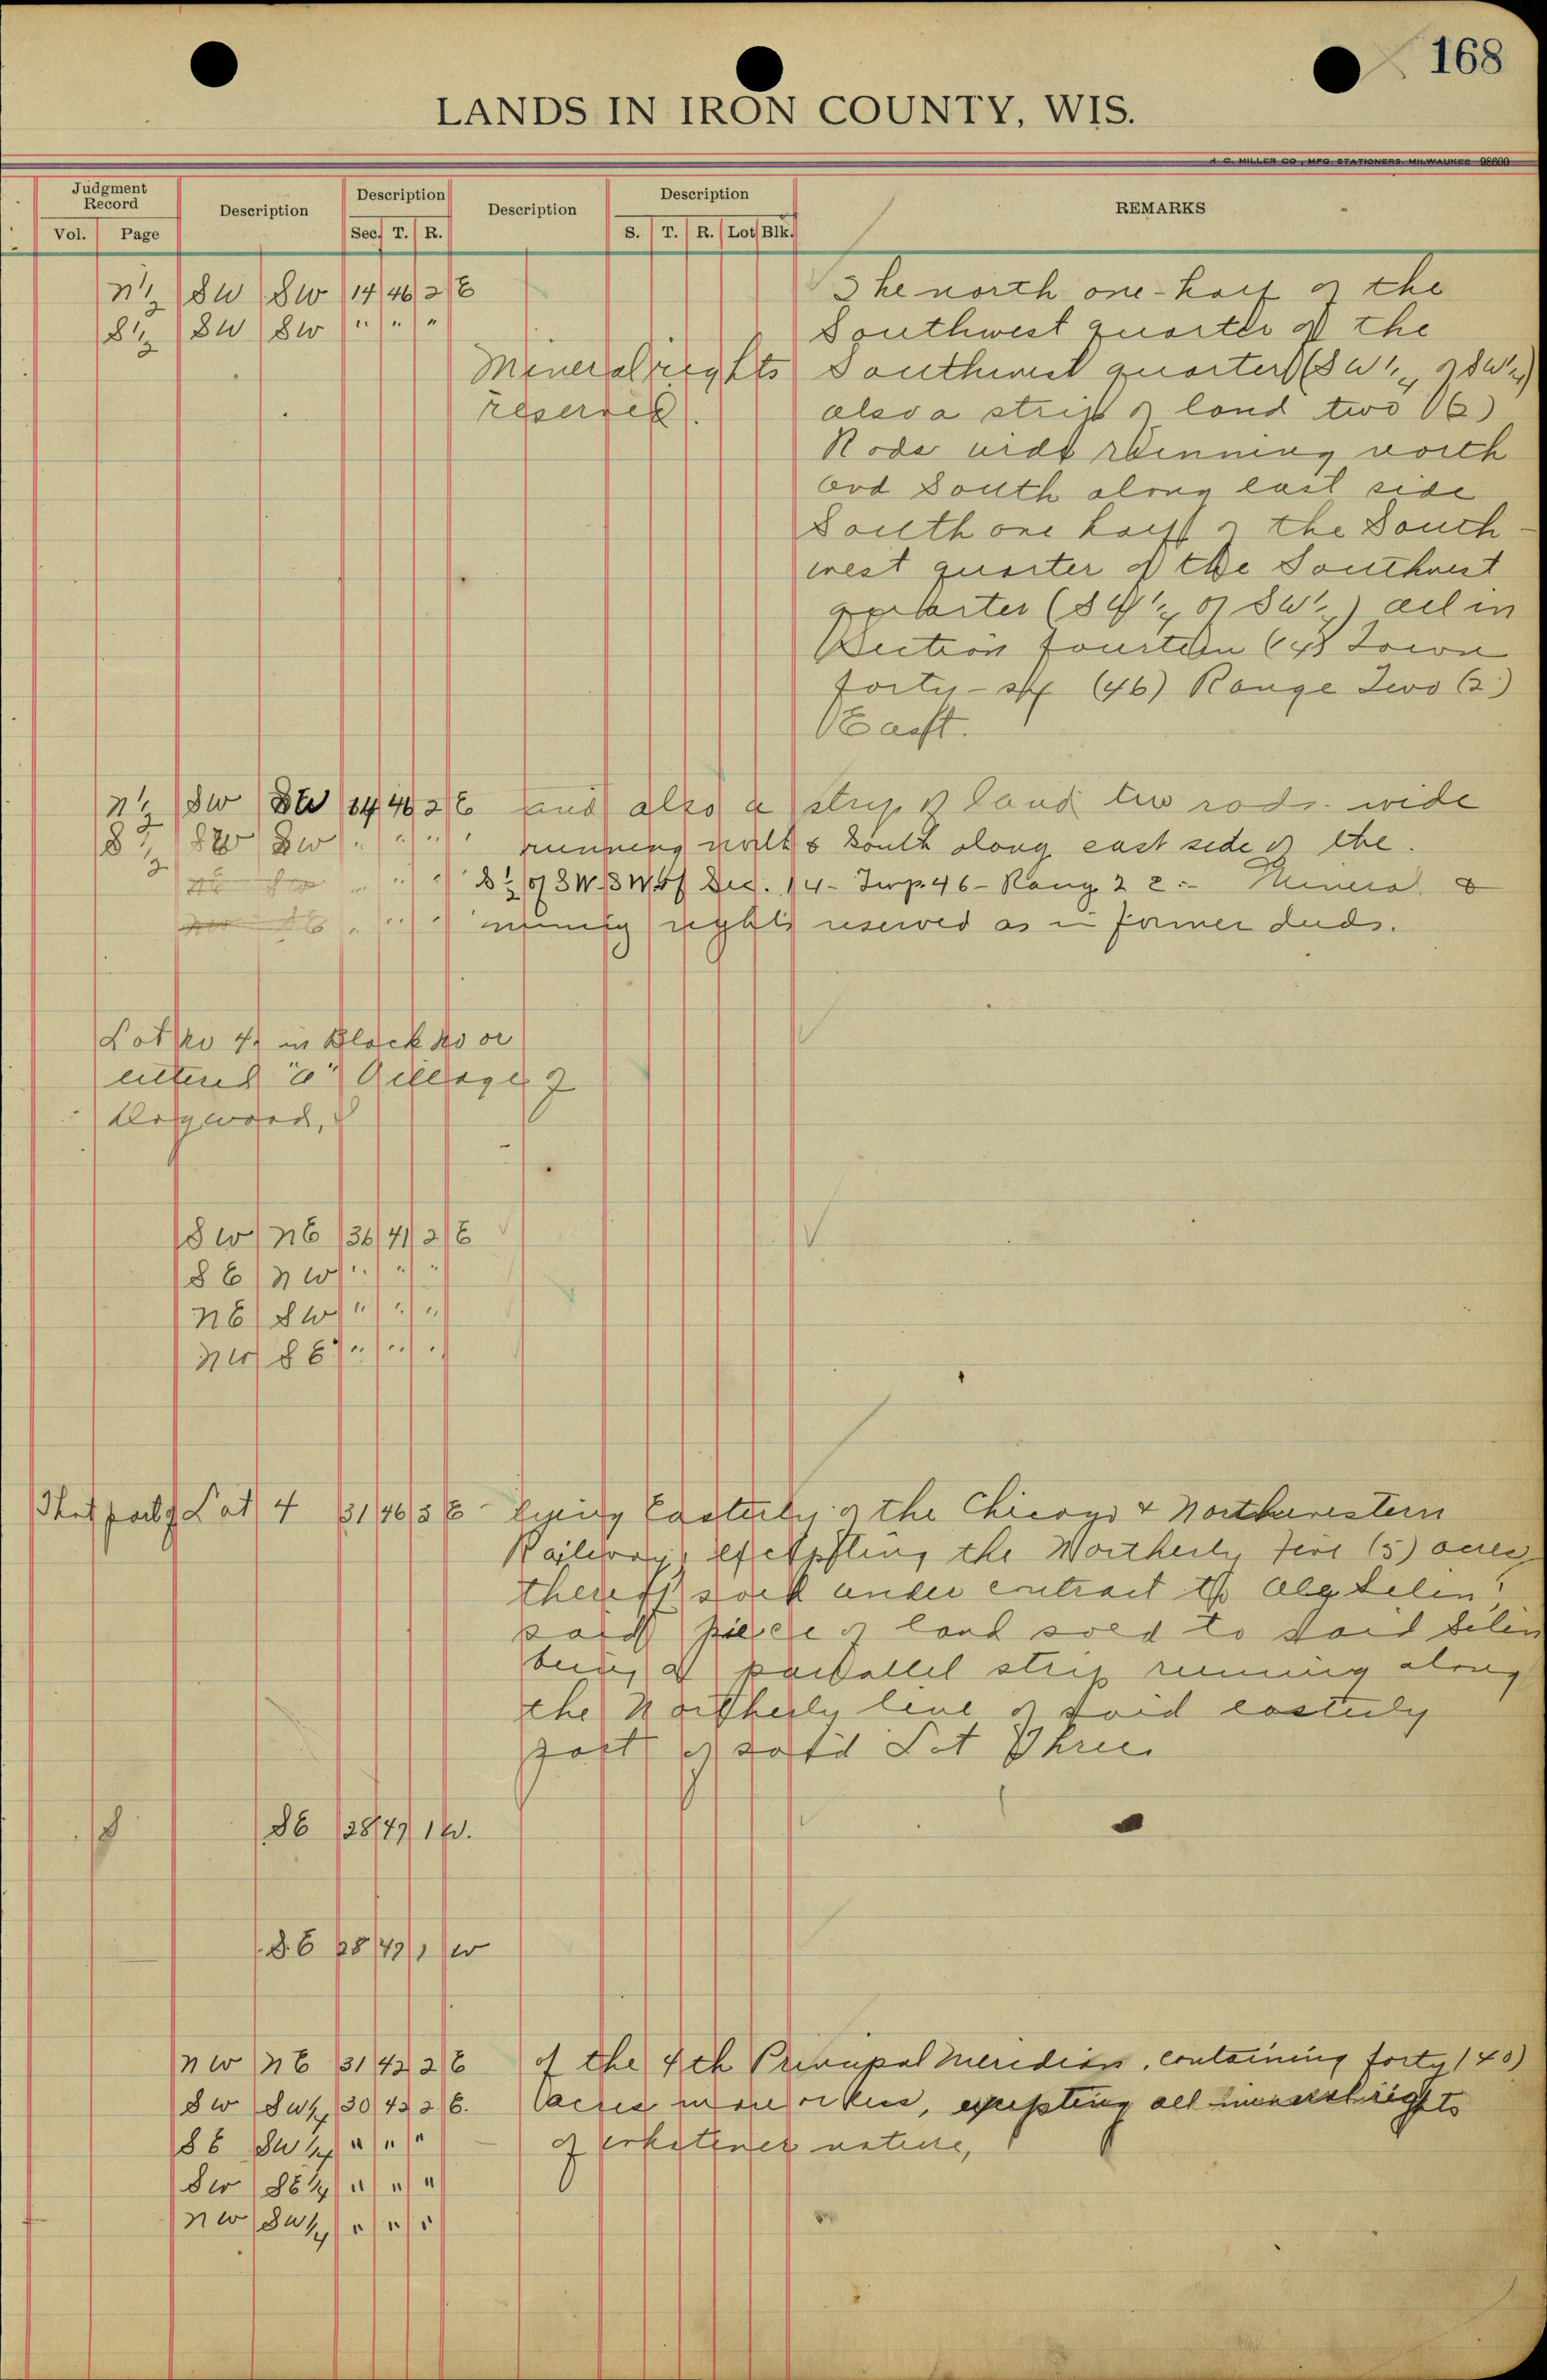 168
LANDS IN IRON COUNTY, WIS.
H. C. MILLER CO., MFG. STATIONERS, MILWAUKEE 98600
Judgment Record Description Description Description Description REMARKS
Vol. Page Sec. T. R. S. T. R. Lot Blk.
N½ SW SW 14 46 2 E The north one-half of the
S½ SW SW " " " Southwest quarter of the
Mineral rights Southwest quarter (SW¼ of SW¼)
reserved. also a strip of land two (2)
Rods wide running north
and South along east side
South one half of the South-
west quarter of the Southwest
quarter (SW¼ of SW¼) all in
Section fourteen (14) Town
forty-six (46) Range Two (2)
East.
N½ SW SW 14 46 2 E and also a strip of land two rods wide
S½ SW SW " " " running north & South along east side of the
" " " S½ of SW SW of Sec. 14 - Twp. 46 - Rang 2 E:- Mineral &
" " " mining rights reserved as in former deeds.
Lot No 4 in Block no or
lettered "C" Village of
SW NE 36 41 2 E
SE NW " " "
NE SW " " "
NW SE " " "
That part of Lot 4 31 46 3 E - lying Easterly of the Chicago & Northwestern
Railway, excepting the Northerly five (5) acres
thereof sold under contract to
said piece of land sold to said
being a parallel strip running along
the Northerly line of said easterly
part of said Lot Three
SE 28 47 1 W.
S.E 28 47 1 W
NW NE 31 42 2 E of the 4th Principal Meridian, containing forty (40)
SW SW¼ 30 42 2 E. acres more or less, excepting all mineral rights
SE SW¼ " " " of whatever nature,
SW SE¼ " " "
NW SW¼ " " "